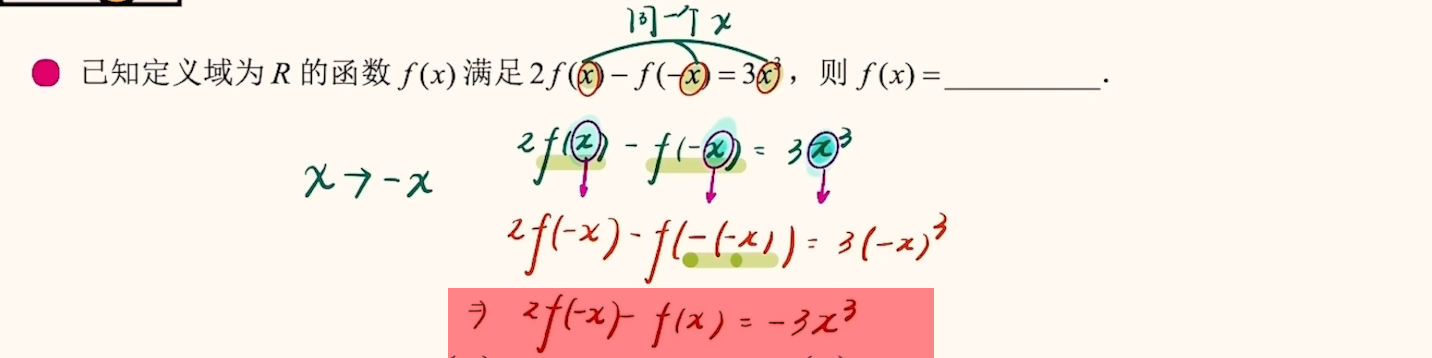 同一个 x
已知定义域为 R 的函数 f(x) 满足 2f(x) − f(−x) = 3x³，则 f(x) = __________.
2f(x) - f(-x) = 3x³
x → -x
2f(-x) - f(-(-x)) = 3(-x)³
⇒ 2f(-x) - f(x) = -3x³